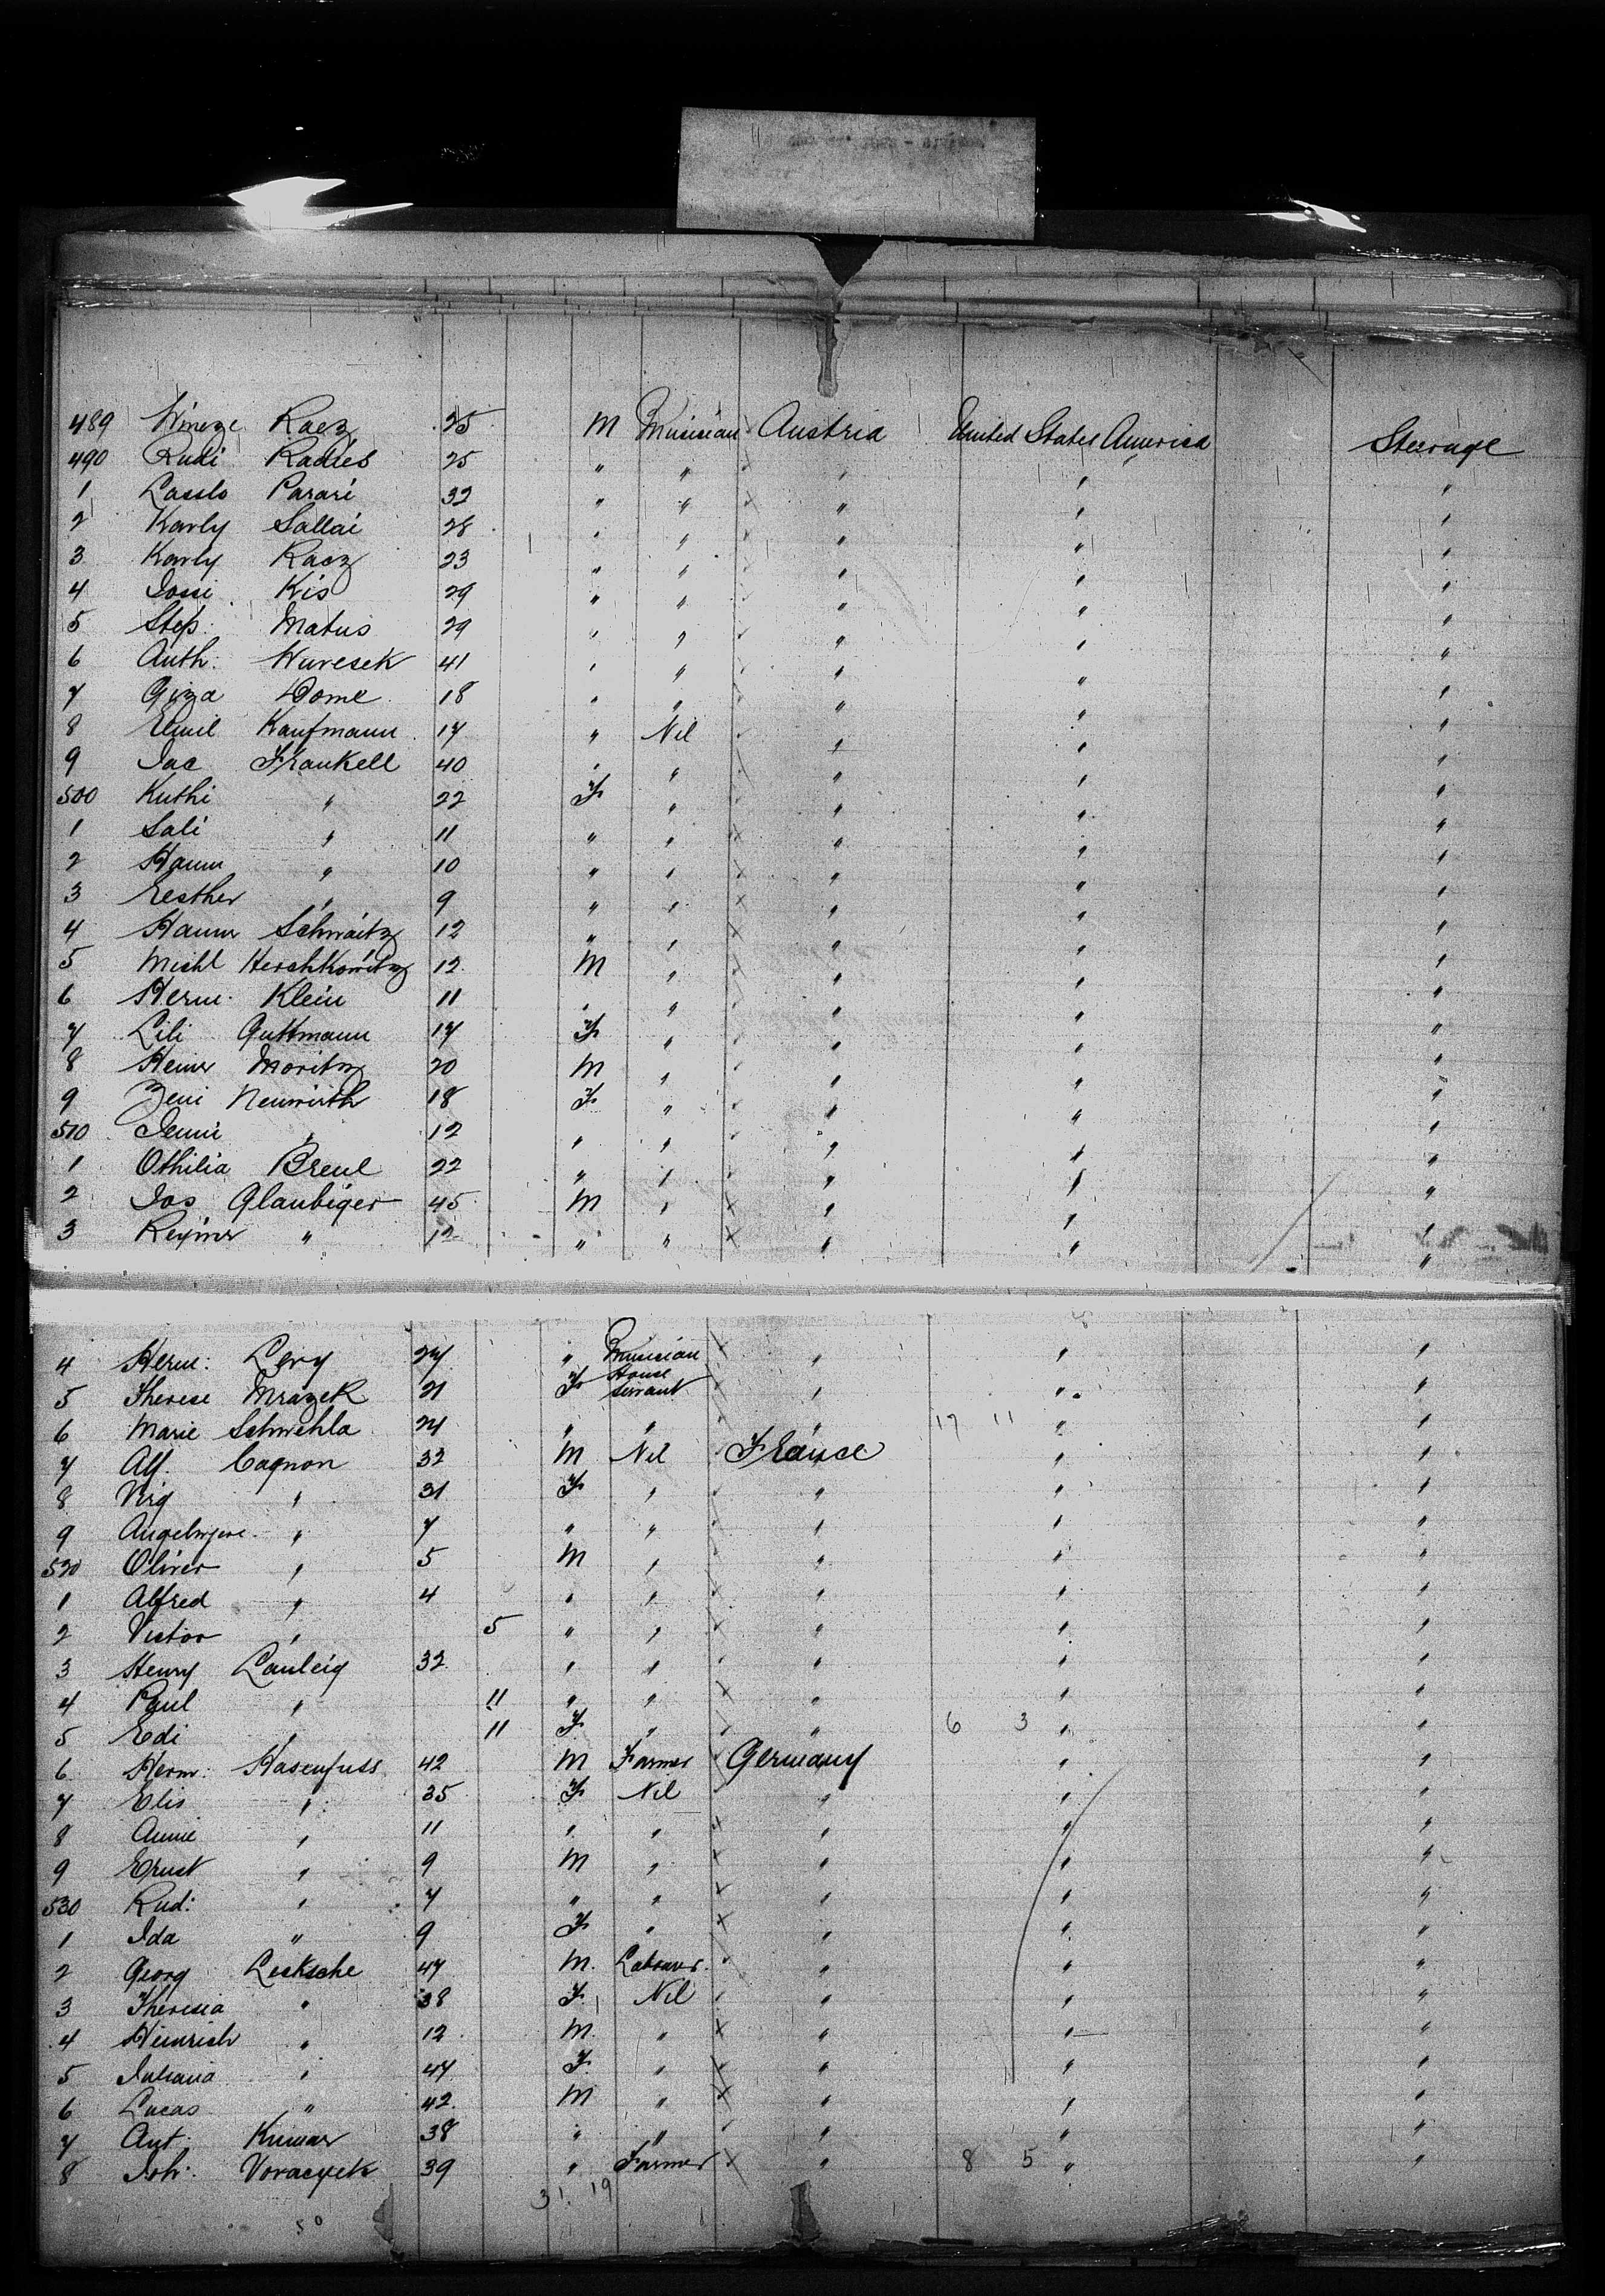 489 Racz 25 M Musician Austria United States America Steerage
490 Rudi Radics 25 " " " " "
1 Lasslo Parari 32 " " " " "
2 Karly Sallai 28 " " " " "
3 Karly Racz 23 " " " " "
4 Jossi Kis 29 " " " " "
5 Step: Matus 29 " " " " "
6 Anth: Wuresek 41 " " " " "
7 Giza Dome 18 " " " " "
8 Emil Kaufmann 17 " Nil " " "
9 Jac Frankell 40 " " " " "
500 Kuthi " 22 F " " " "
1 Sali " 11 " " " " "
2 Hann " 10 " " " " "
3 Eesther " 9 " " " " "
4 Hann Schwaitz 12 " " " " "
5 Michl Hershkowitz 12 M " " " "
6 Herm. Klein 11 " " " " "
7 Lili Guttmann 17 F " " " "
8 Heinr Moritz 20 M " " " "
9 Zeni Neuwirth 18 F " " " "
510 Jenni " 12 " " " " "
1 Othilia Breul 22 " " " " "
2 Jos Glaubiger 45 M " " " "
3 " 12 " " " " "
4 Herm: Levy 27 " Musician " " "
5 Therese Mrazek 21 F House servant " " "
6 Marie Schwehla 24 " " " 17 11 " "
7 Alf. Cagnon 32 M Nil France " "
8 Virg " 31 F " " " "
9 " 7 " " " " "
520 Oliver " 5 M " " " "
1 Alfred " 4 " " " " "
2 Victor " 5 " " " " "
3 Henry Lauleig 32 " " " " "
4 Paul " 11 " " " " "
5 Edi " 11 F " " 6 3 " "
6 Herm: Hasenfuss 42 M Farmer Germany " "
7 Elis " 35 F Nil " " "
8 Annie " 11 " " " " "
9 Ernst " 9 M " " " "
530 Rud: " 7 " " " " "
1 Ida " 9 F " " " "
2 Georg Lecksche 47 M. Labourer. " " "
3 Theresia " 38 F. Nil " " "
4 Heinrich " 12 M. " " " "
5 Juliana " 47 F. " " " "
6 Lucas " 42. M " " " "
7 Ant: Kumar 38 " " " " "
8 Joh: Voraczek 39 " Farmer " 8 5 " "
31. 19
50